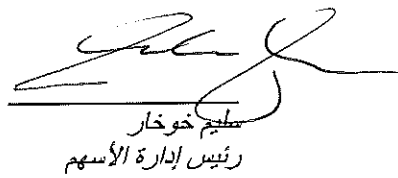 سليم خوخار
رئيس إدارة الأسهم